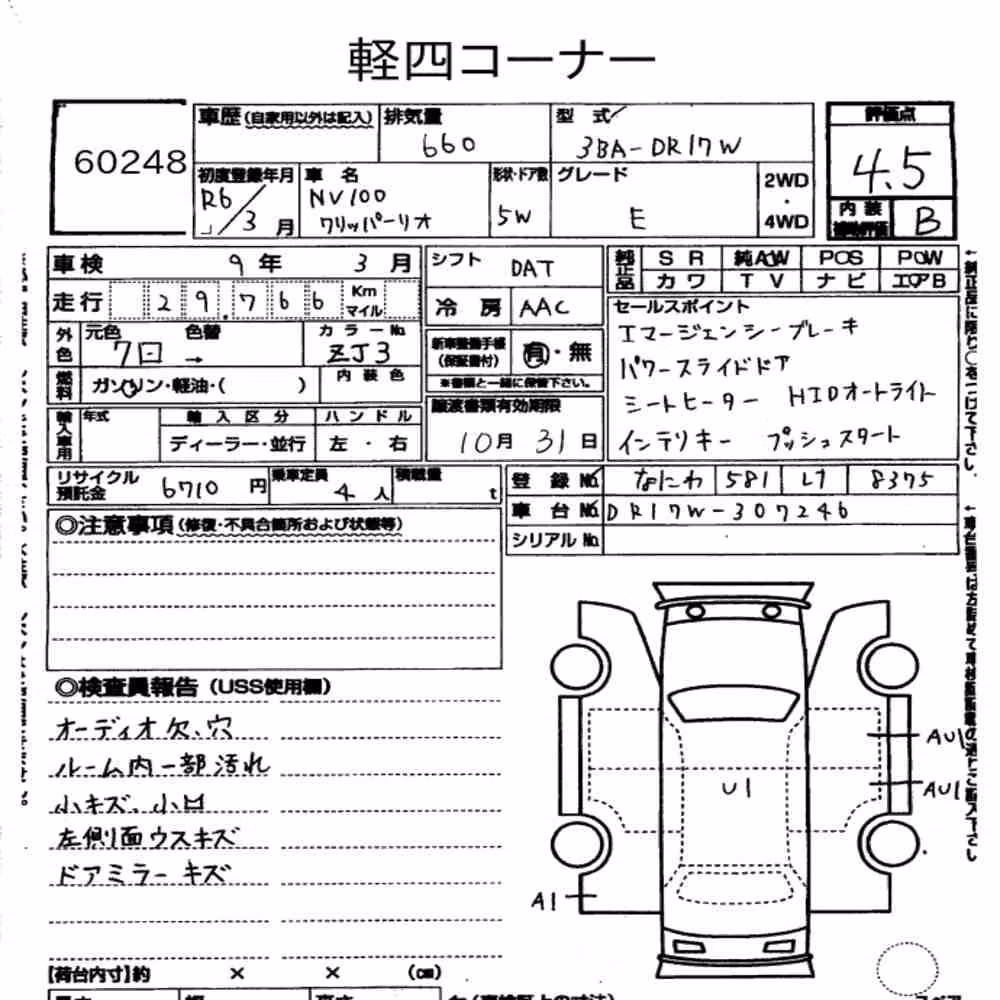 軽四コーナー
60248
車歴 (自家用以外は記入)
排気量 660
型 式 3BA-DR17W
評価点 4.5
初度登録年月 R6/3月
車 名 NV100 クリッパーリオ
形状・ドア数 5W
グレード E
2WD ・ 4WD
内 装 B
車検 9年 3月
走行 29,766 Km マイル
外色 元色 色替 →
カラーNo. ZJ3
内 装 色
燃料 ガソリン・軽油・( )
輸入車用 年式 輸入区分 ハンドル
ディーラー・並行 左 ・ 右
シフト DAT
冷 房 AAC
新車整備手帳 (保証書付) 有・無
※書類と一緒に保管下さい。
譲渡書類有効期限
10月 31日
純正品 S R 純AW PS PW
カ ワ T V ナ ビ エアB
セールスポイント
エマージェンシーブレーキ
パワースライドドア
シートヒーター HIDオートライト
インテリキー プッシュスタート
リサイクル預託金 6710 円
乗車定員 4 人
積載量 t
登 録 No. なにわ 581 8375
車 台 No. DR17W-307246
シリアル No.
◎注意事項 (修復・不具合箇所および状態等)
◎検査員報告 (USS使用欄)
オーディオ欠、穴
ルーム内一部汚れ
小キズ、小凹
左側面ウスキズ
ドアミラーキズ
AU1
AU1
U1
A1
【荷台内寸】約 × × (cm)